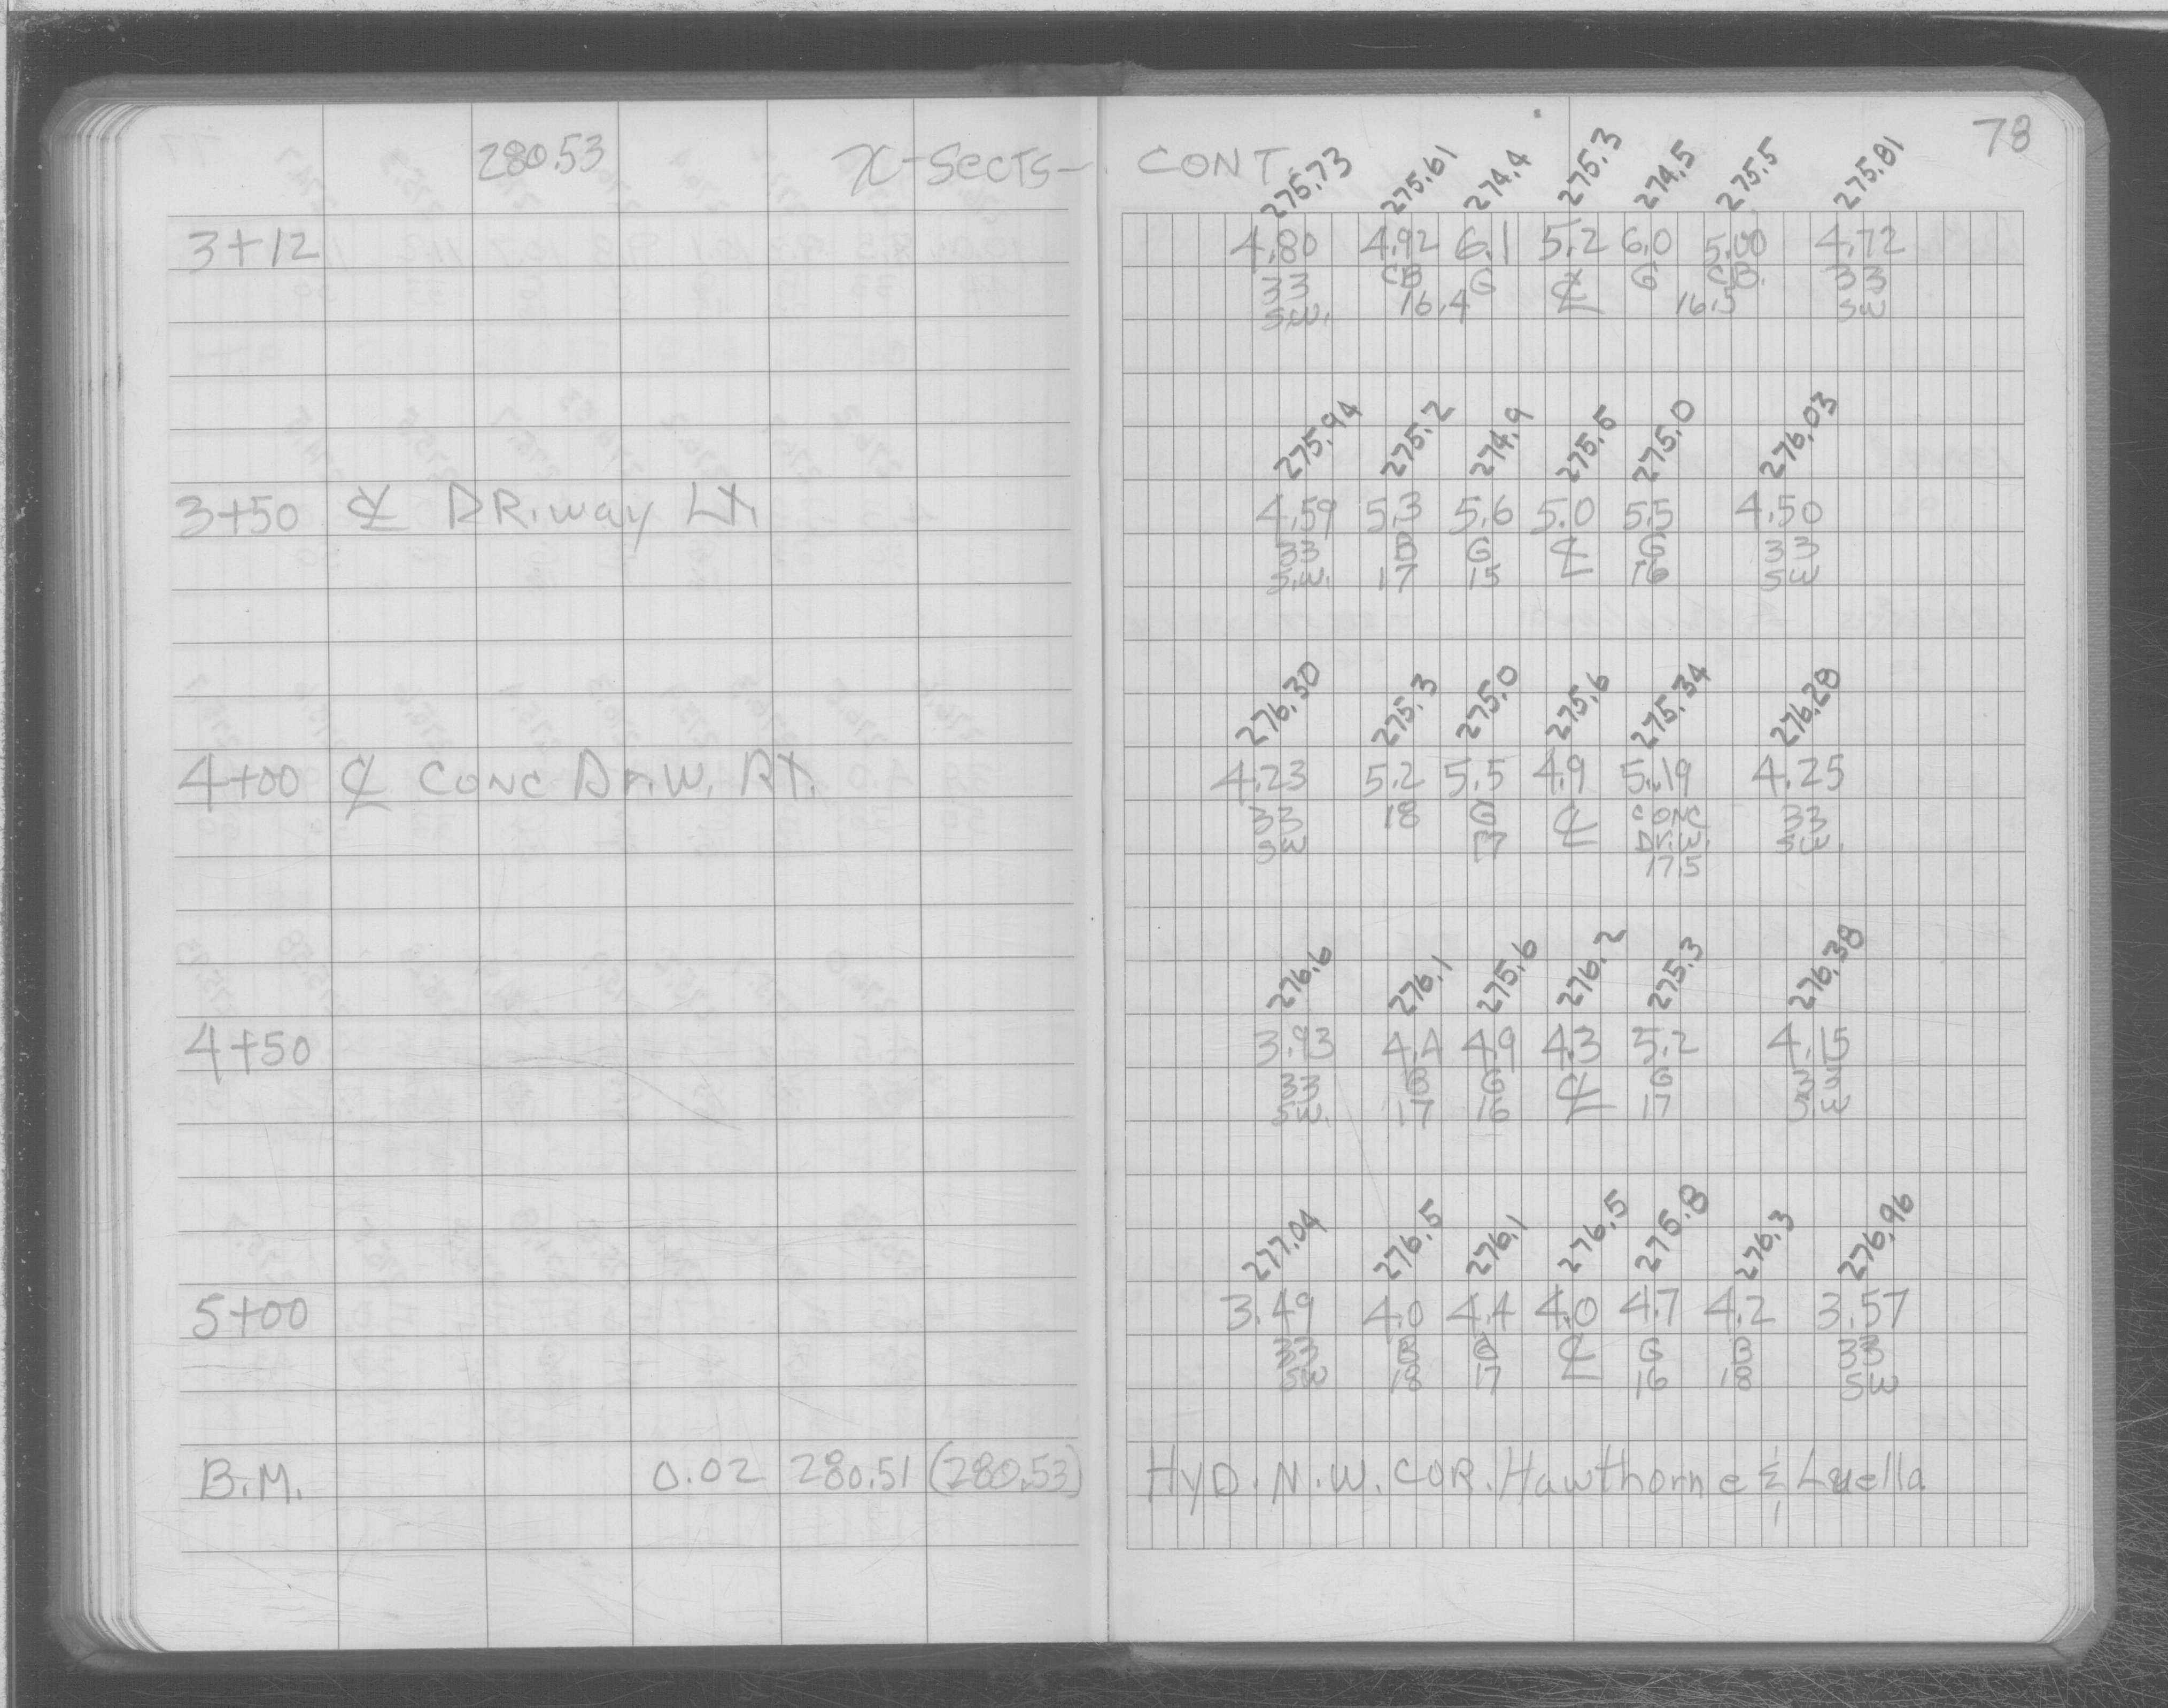 78
280.53 X-Sects- CONT.
275.73 275.61 274.4 275.3 274.5 275.5 275.81
3+12 4.80 4.92 6.1 5.2 6.0 5.00 4.72
33 CB G ℄ G CB. 33
S.W. 16.4 16.5 SW
275.94 275.2 274.9 275.5 275.0 276.03
3+50 ℄ DR.way Lt. 4.59 5.3 5.6 5.0 5.5 4.50
33 B G ℄ G 33
S.W. 17 15 16 SW
276.30 275.3 275.0 275.6 275.34 276.28
4+00 ℄ CONC Dr.W. Rt. 4.23 5.2 5.5 4.9 5.19 4.25
33 18 G ℄ CONC 33
SW 17 Dr.W. SW.
17.5
276.6 276.1 275.6 276.2 275.3 276.38
4+50 3.93 4.4 4.9 4.3 5.2 4.15
33 B G ℄ G 33
S.W. 17 16 17 SW
277.04 276.5 276.1 276.5 275.8 276.3 276.96
5+00 3.49 4.0 4.4 4.0 4.7 4.2 3.57
33 B G ℄ G B 33
SW 18 17 16 18 SW
B.M. 0.02 280.51 (280.53) HYD. N.W. COR. Hawthorne & Luella